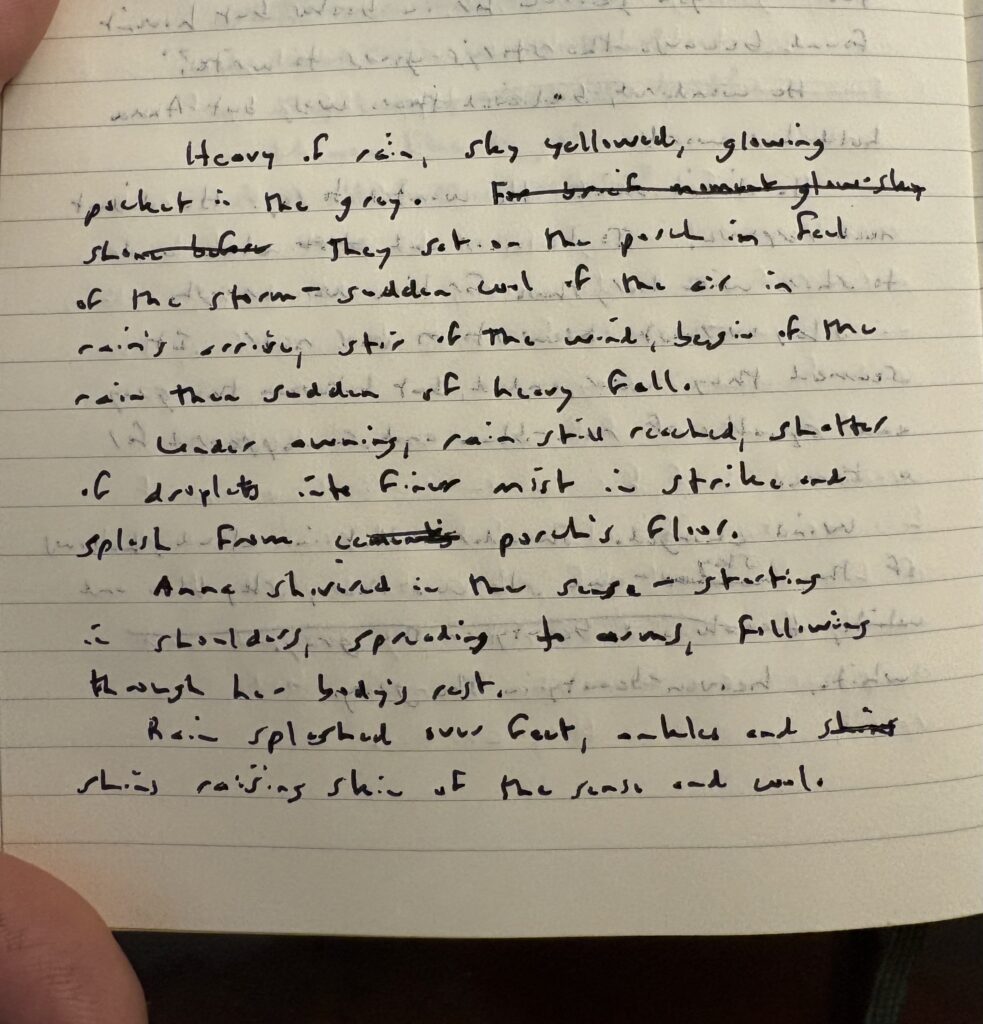 Heavy of rain, sky yellowed, glowing
pocket in the grey. For brief moment glow-sky
shone before They sat on the porch in feel
of the storm - sudden cool of the air in
rain's arrive, stir of the wind, begin of the
rain then sudden of heavy fall.
Under awning, rain still reached, shatter
of droplets into finer mist in strike and
splash from porch's floor.
Anna shivered in the sense - starting
in shoulders, spreading to arms, following
through her body's rest.
Rain splashed over feet, ankles and shins
shins raising skin of the sense and cool.